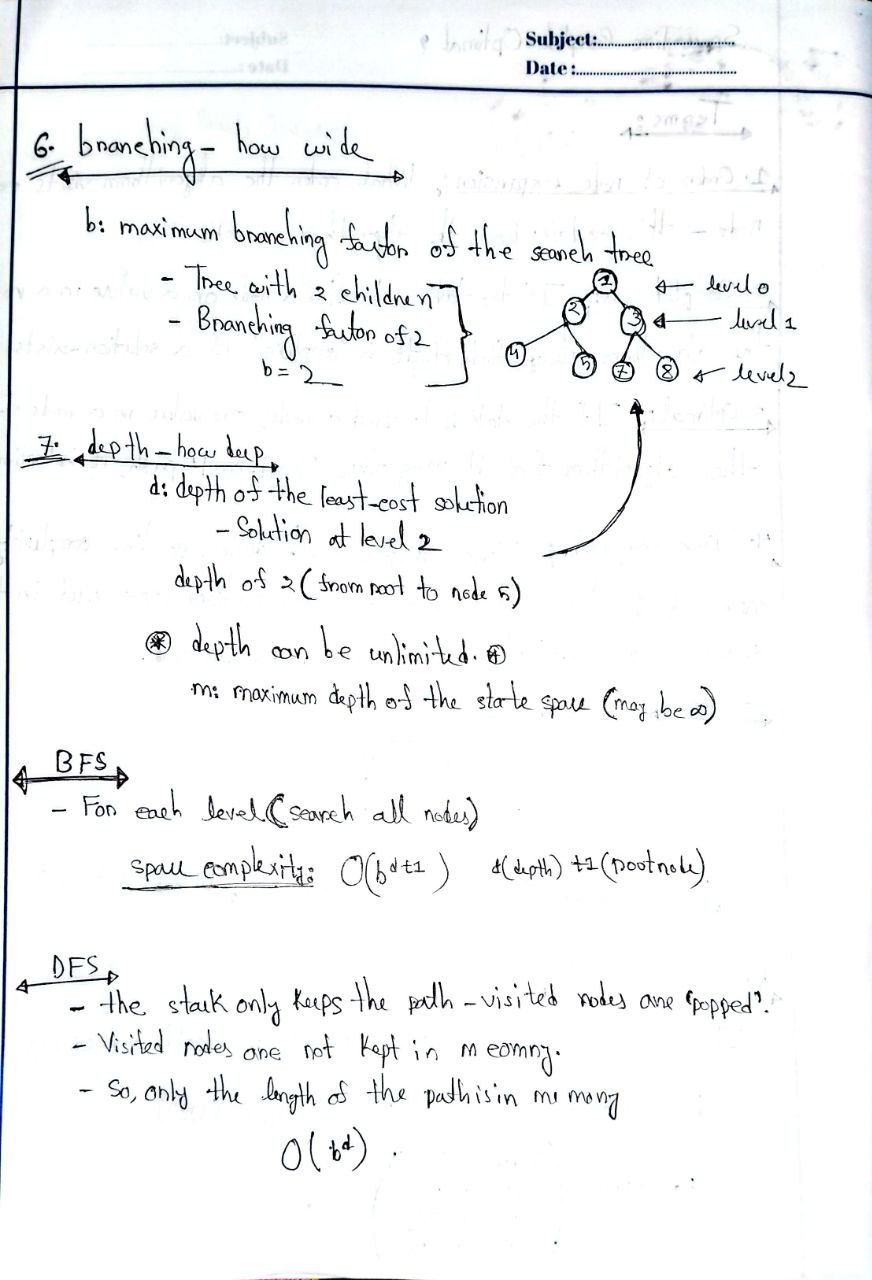 Subject:
Date:
6. branching - how wide
b: maximum branching factor of the search tree
- Tree with 2 children
- Branching factor of 2
b = 2
1 ← level 0
2 3 ← level 1
4 5 7 8 ← level 2
7. depth - how deep
d: depth of the least-cost solution
- Solution at level 2
depth of 2 (from root to node 5)
* depth can be unlimited. *
m: maximum depth of the state space (may be ∞)
BFS
- For each level (search all nodes)
space complexity: O(b^d+1) d(depth) +1(root node)
DFS
- the stack only keeps the path - visited nodes are "popped".
- Visited nodes are not kept in meomry.
- So, only the length of the path is in memory
O(b^d).